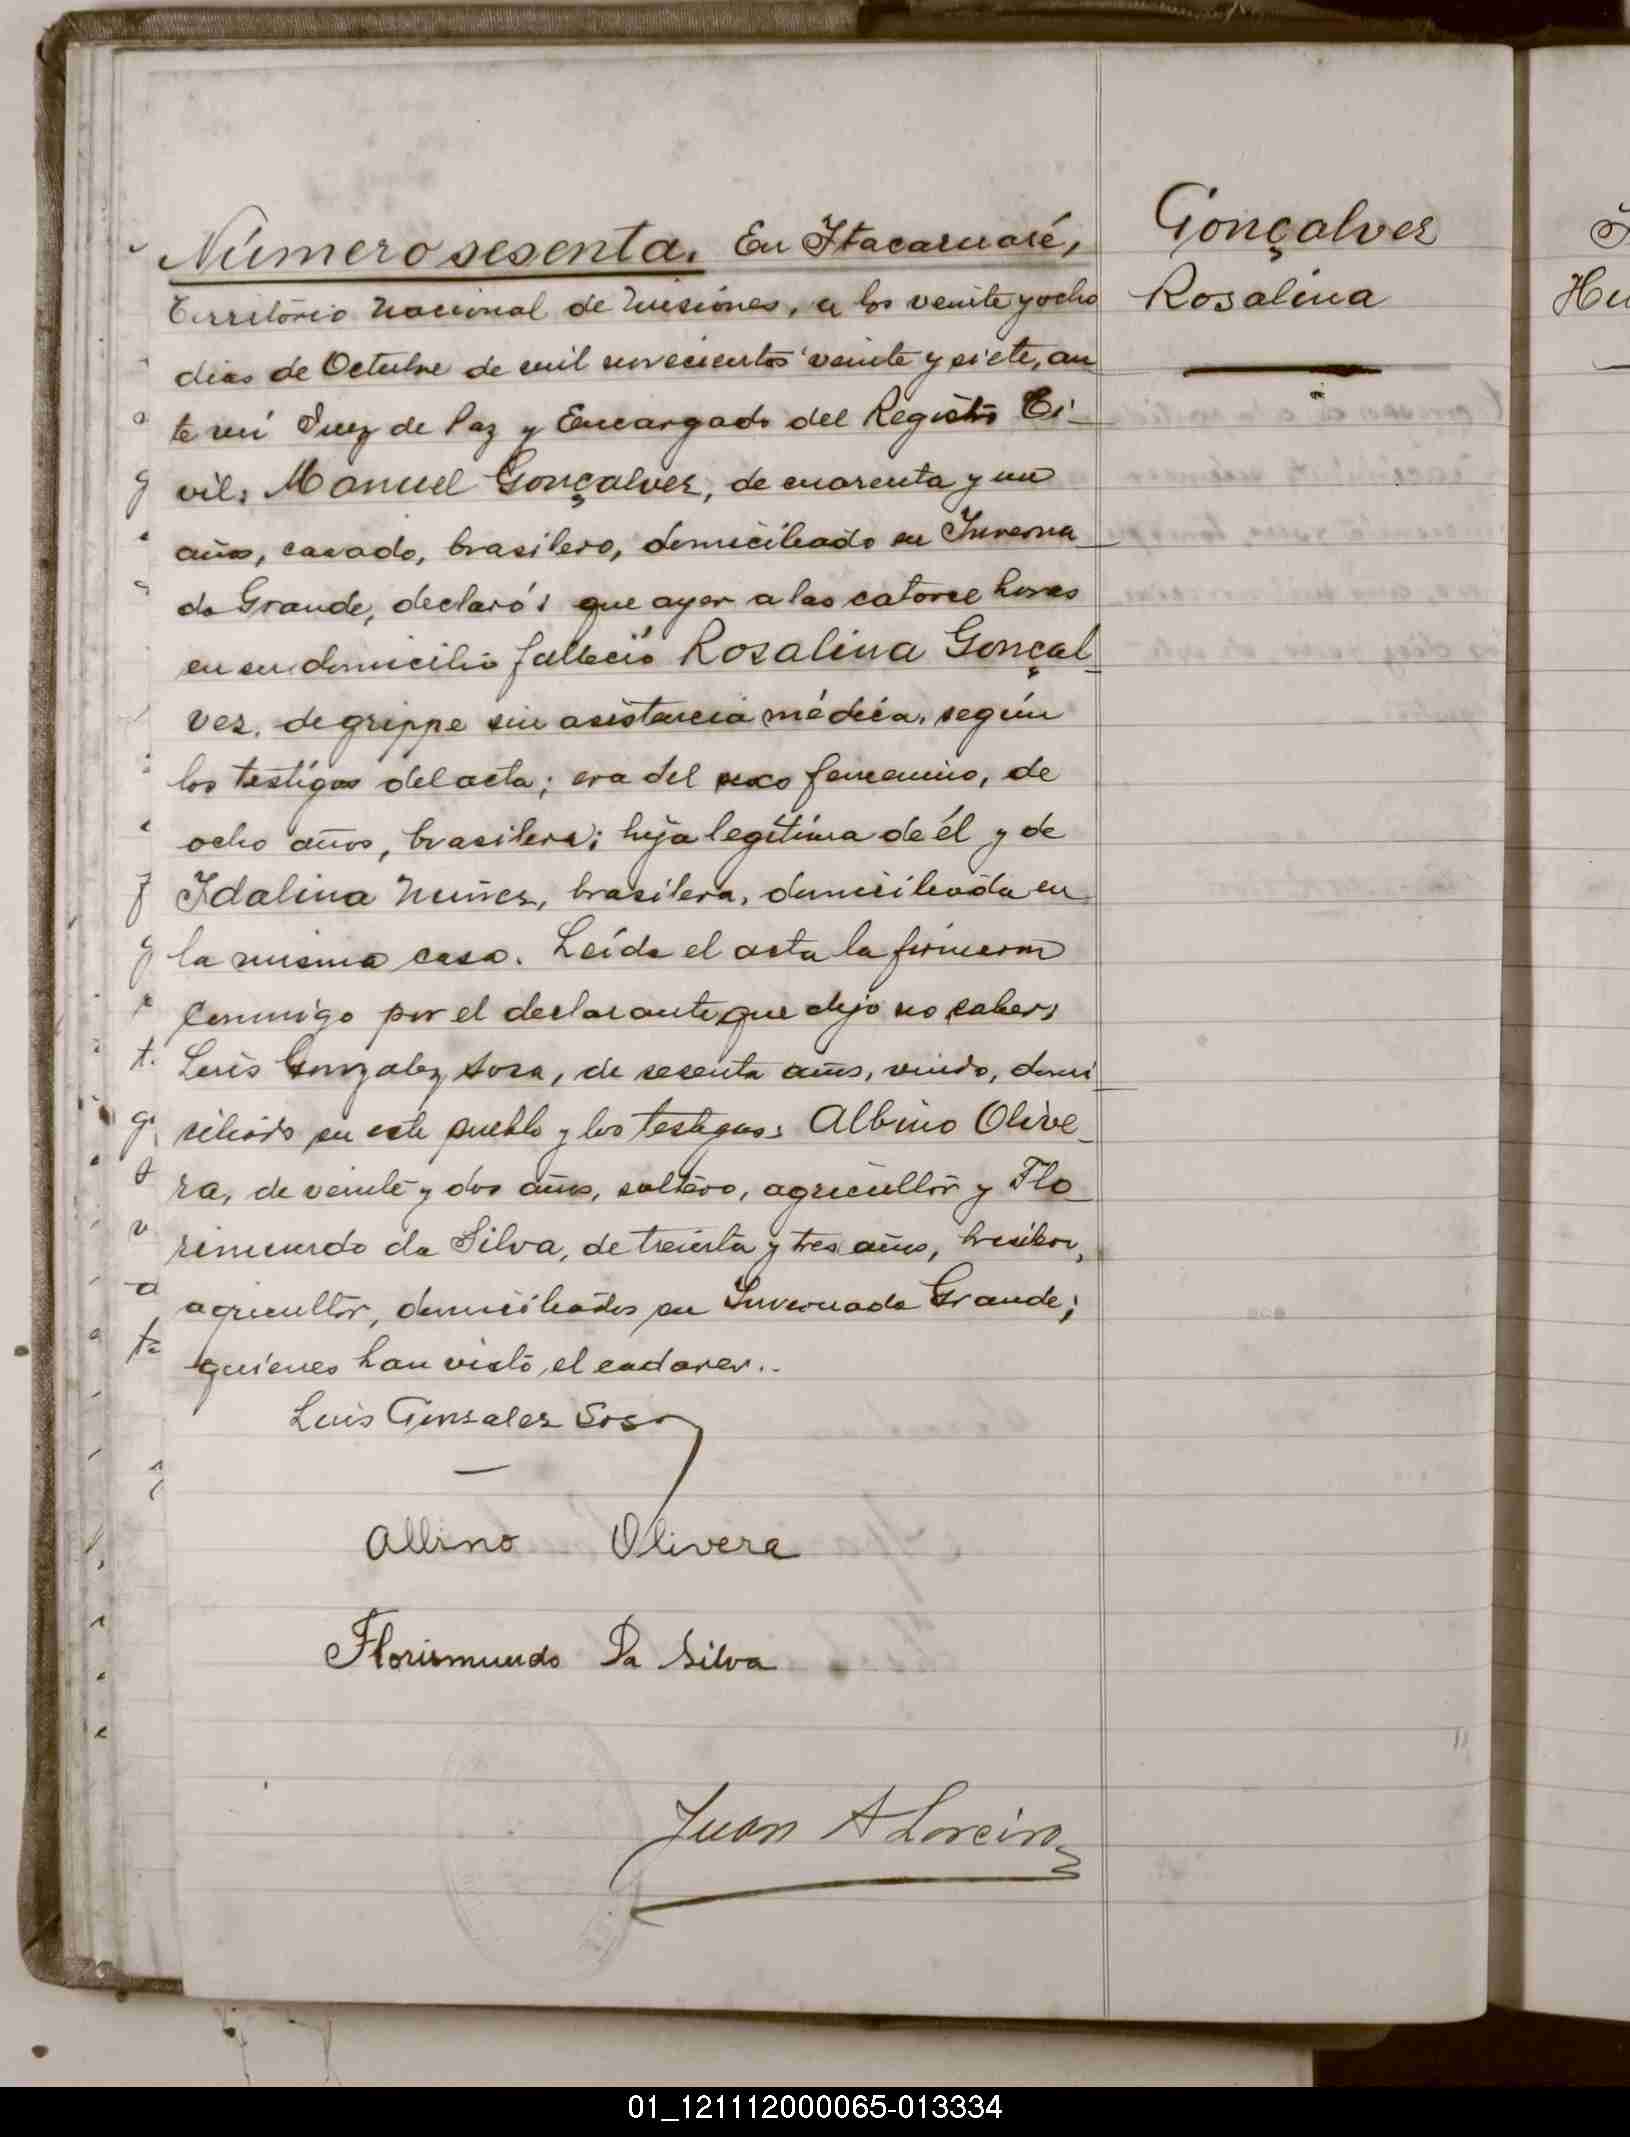 Número sesenta. En Itacaruaré,
Territorio Nacional de Misiones, a los veinte y ocho
dias de Octubre de mil novecientos veinte y siete, an
te mí Juez de Paz y Encargado del Registro Ci-
vil; Manuel Gonçalvez, de cuarenta y un
años, casado, brasilero, domiciliado en Inverna
da Grande, declaró: que ayer a las catorce horas
en su domicilio falleció Rosalina Gonçal-
vez, de grippe sin asistencia médica, según
los testigos del acta; era del sexo femenino, de
ocho años, brasilera; hija legítima de él y de
Idalina Nuñez, brasilera, domiciliada en
la misma casa. Leída el acta la firmaron
conmigo por el declarante que dijo no saber;
Luis Gonzalez Sosa, de sesenta años, viudo, domi-
ciliado en este pueblo y los testigos; Albino Olive-
ra, de veinte y dos años, soltero, agricultor y Flo
rimundo da Silva, de treinta y tres años, brasilero,
agricultor, domiciliados en Invernada Grande;
quienes han visto el cadaver.
Luis Gonzalez Sosa
Albino Olivera
Florismundo Da Silva
Juan A Loreiro
Gonçalvez
Rosalina
Hu
01_121112000065-013334